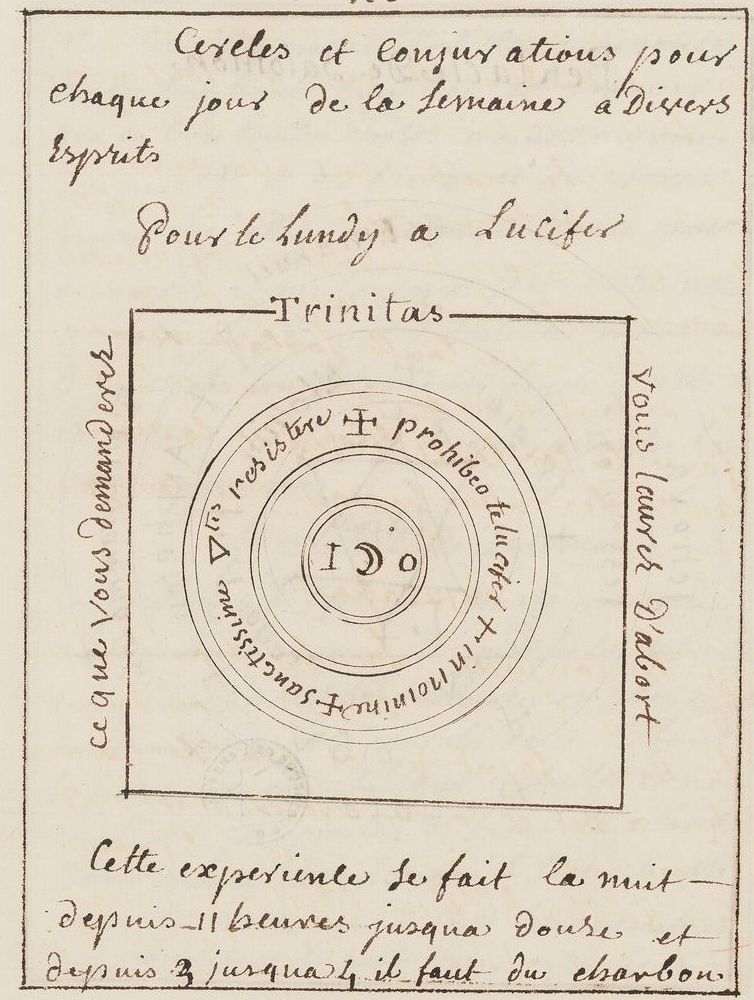 Cercles et Conjurations pour
chaque jour de la Semaine a Divers
Esprits
Pour le Lundy a Lucifer
Trinitas
ce que vous demanderez
✠ prohibeo te lucifer + in nomine + sanctissime Δtis resistere
I ☽ o
vous laurez D'abort
Cette experience se fait la nuit
depuis 11 heures jusqua douze et
depuis 3 jusqua 4 il faut du charbon